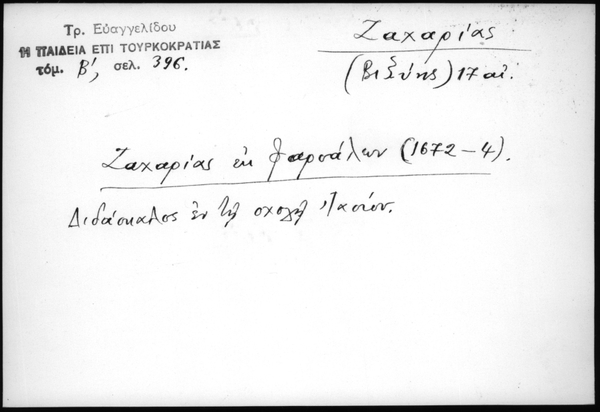 Τρ. Εὐαγγελίδου
Η ΠΑΙΔΕΙΑ ΕΠΙ ΤΟΥΡΚΟΚΡΑΤΙΑΣ
τόμ. Β', σελ. 396.
Ζαχαρίας
(Βιζύης) 17 αἰ.
Ζαχαρίας ἐκ Φαρσάλων (1672-4).
Διδάσκαλος ἐν τῇ σχολῇ